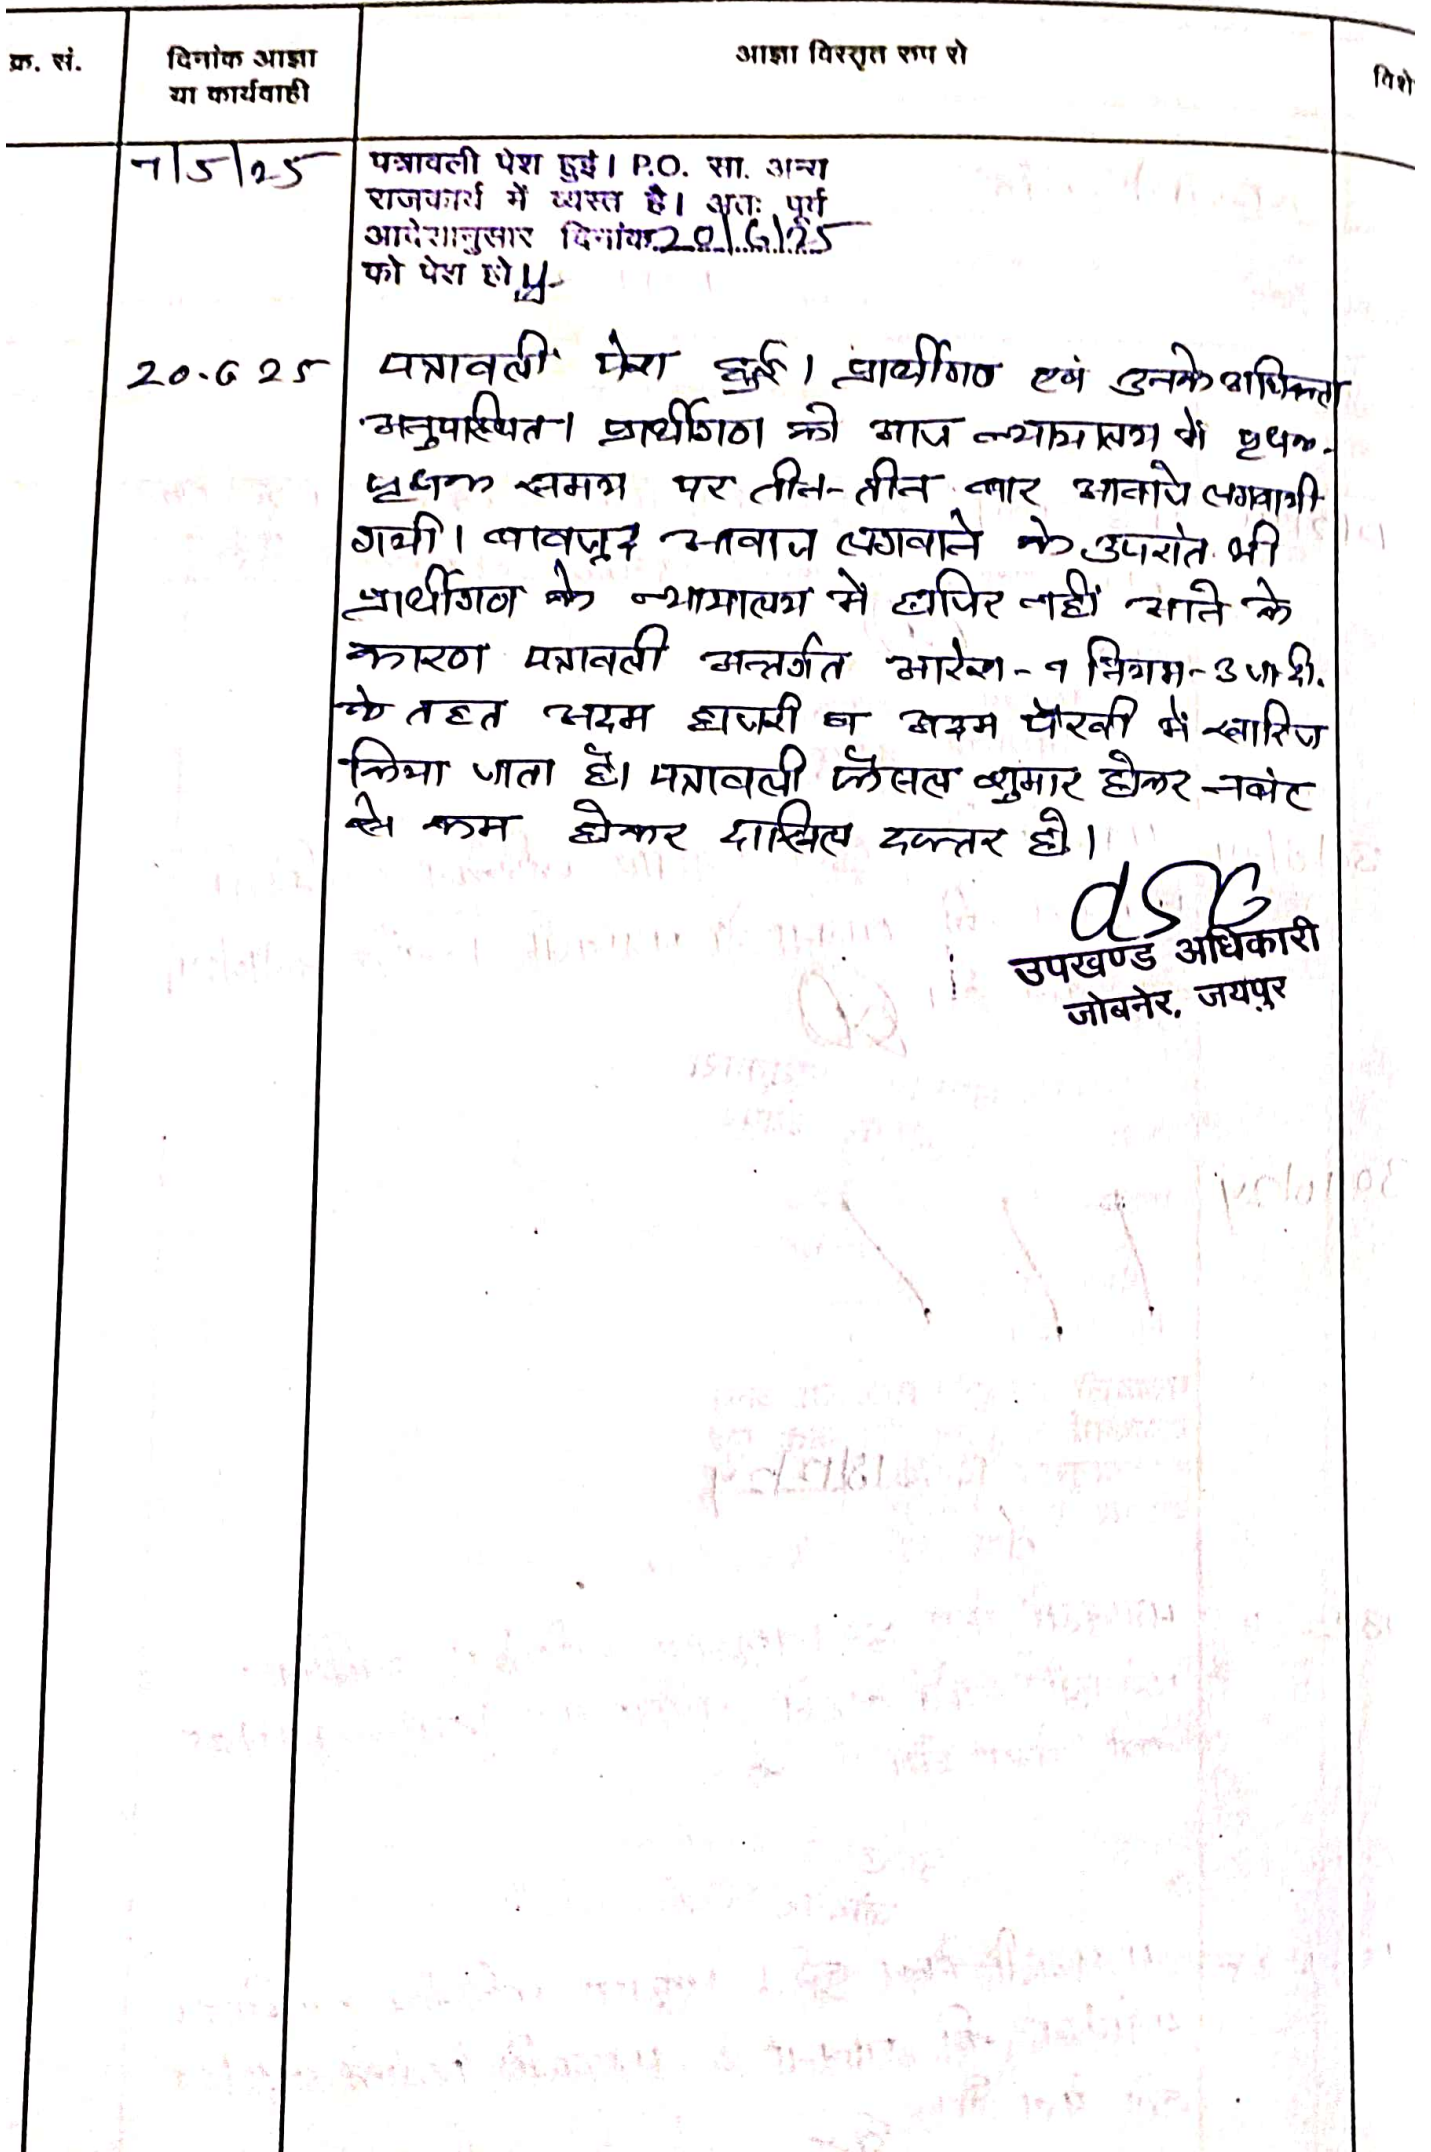 क्र. सं.
दिनांक आज्ञा
या कार्यवाही
आज्ञा विस्तृत रूप से
विशे
7/5/25
पत्रावली पेश हुई। P.O. सा. अन्य
राजकार्य में व्यस्त है। अतः पूर्व
आदेशानुसार दिनांक 20/6/25
को पेश हो
20.6 25
पत्रावली पेश हुई। प्रार्थीगण एवं उनके अधिवक्ता
अनुपस्थित। प्रार्थीगण को आज न्यायालय में पृथक-
पृथक समय पर तीन-तीन बार आवाजे लगवायी
गयी। बावजूद आवाज लगवाने के उपरांत भी
प्रार्थीगण के न्यायालय में हाजिर नहीं आने के
कारण पत्रावली अन्तर्गत आदेश-9 नियम-3 जा.दी.
के तहत अदम हाजरी व अदम पैरवी में खारिज
किया जाता है। पत्रावली फैसल शुमार होकर नम्बर
से कम होकर दाखिल दफ्तर हो।
उपखण्ड अधिकारी
जोबनेर, जयपुर